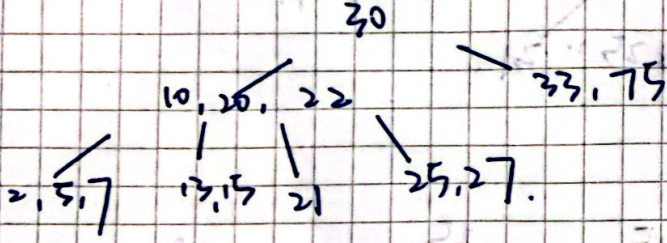 30
10, 20, 22 33, 75
2, 5, 7 13, 15 21 25, 27.